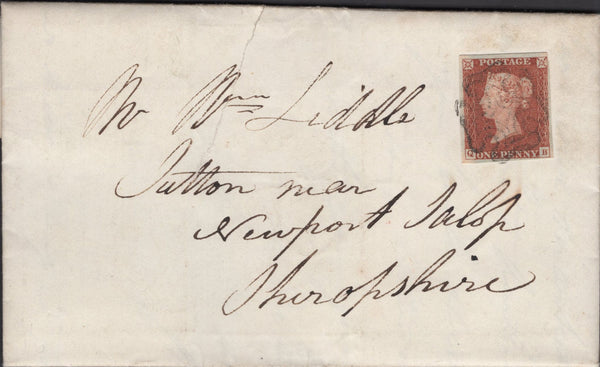 POSTAGE
ONE PENNY
Mr Wm Liddle
Sutton near
Newport Salop
Shropshire